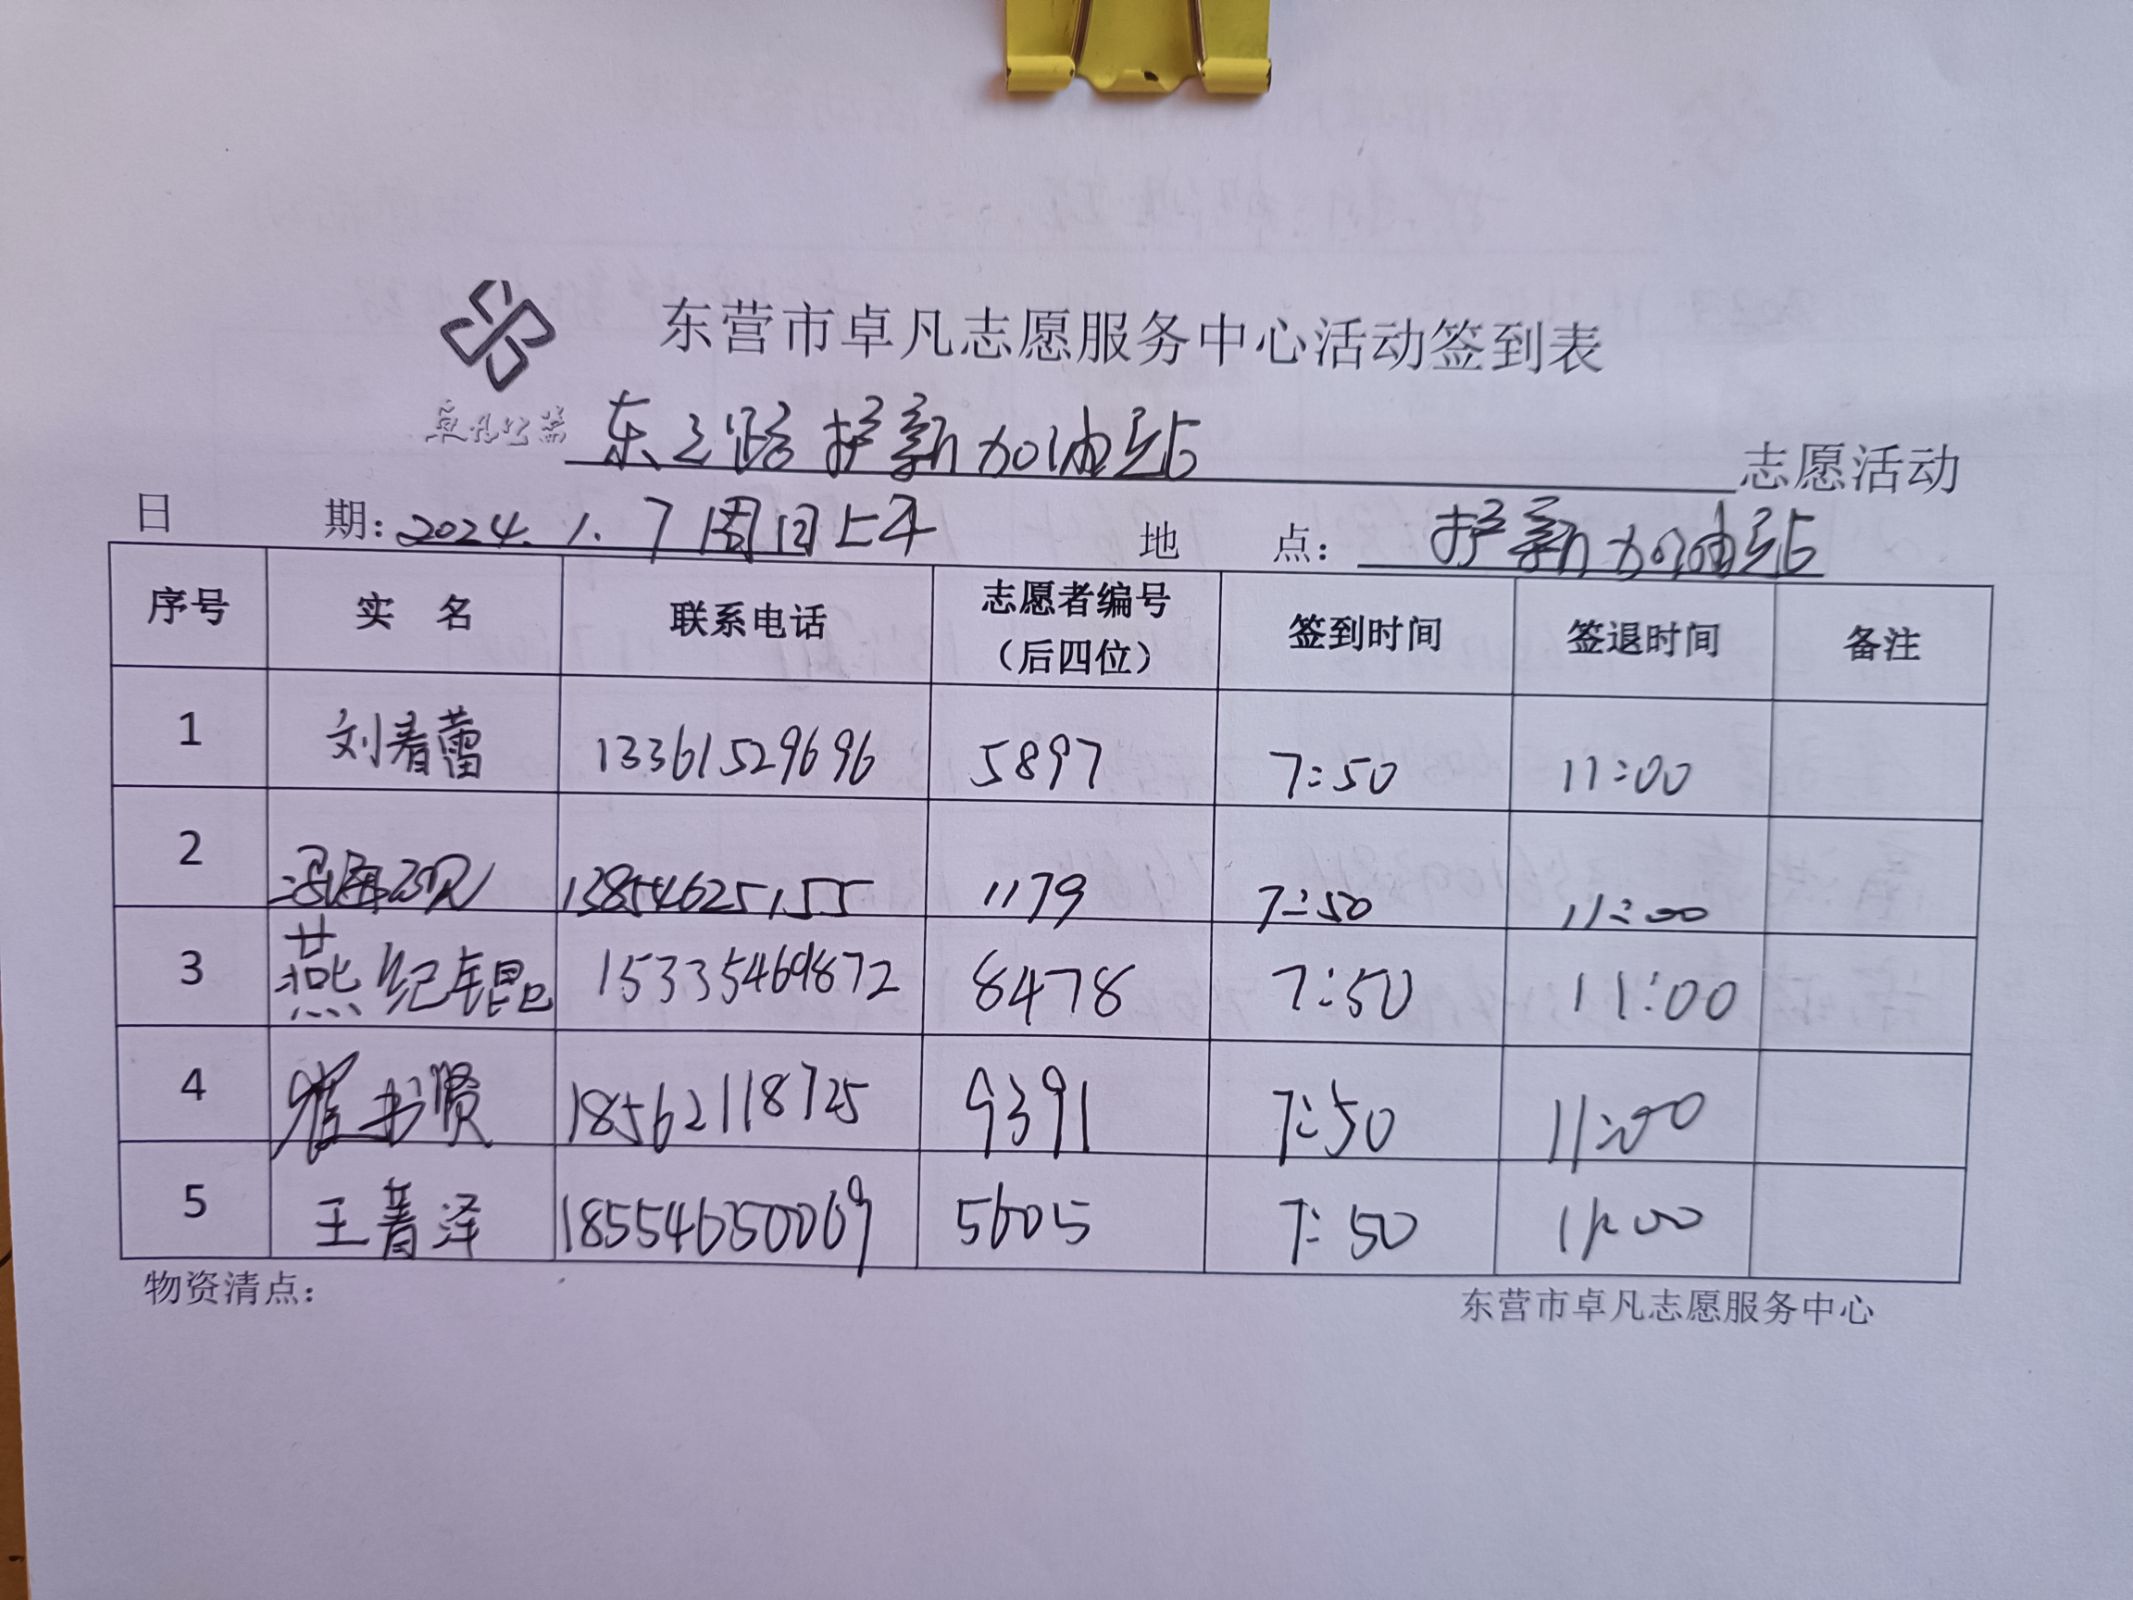 东营市卓凡志愿服务中心活动签到表
卓凡公益
东三路护新加油站 志愿活动
日 期：2024.1.7周日上午 地 点：护新加油站
序号 实 名 联系电话 志愿者编号（后四位） 签到时间 签退时间 备注
1 刘春蕾 13361529696 5897 7:50 11:00
2 13854625155 1179 7:50 11:00
3 燕纪锟 15335469872 8478 7:50 11:00
4 崔书贤 18562118725 9391 7:50 11:00
5 王菁泽 18554650069 5605 7:50 11:00
物资清点： 东营市卓凡志愿服务中心